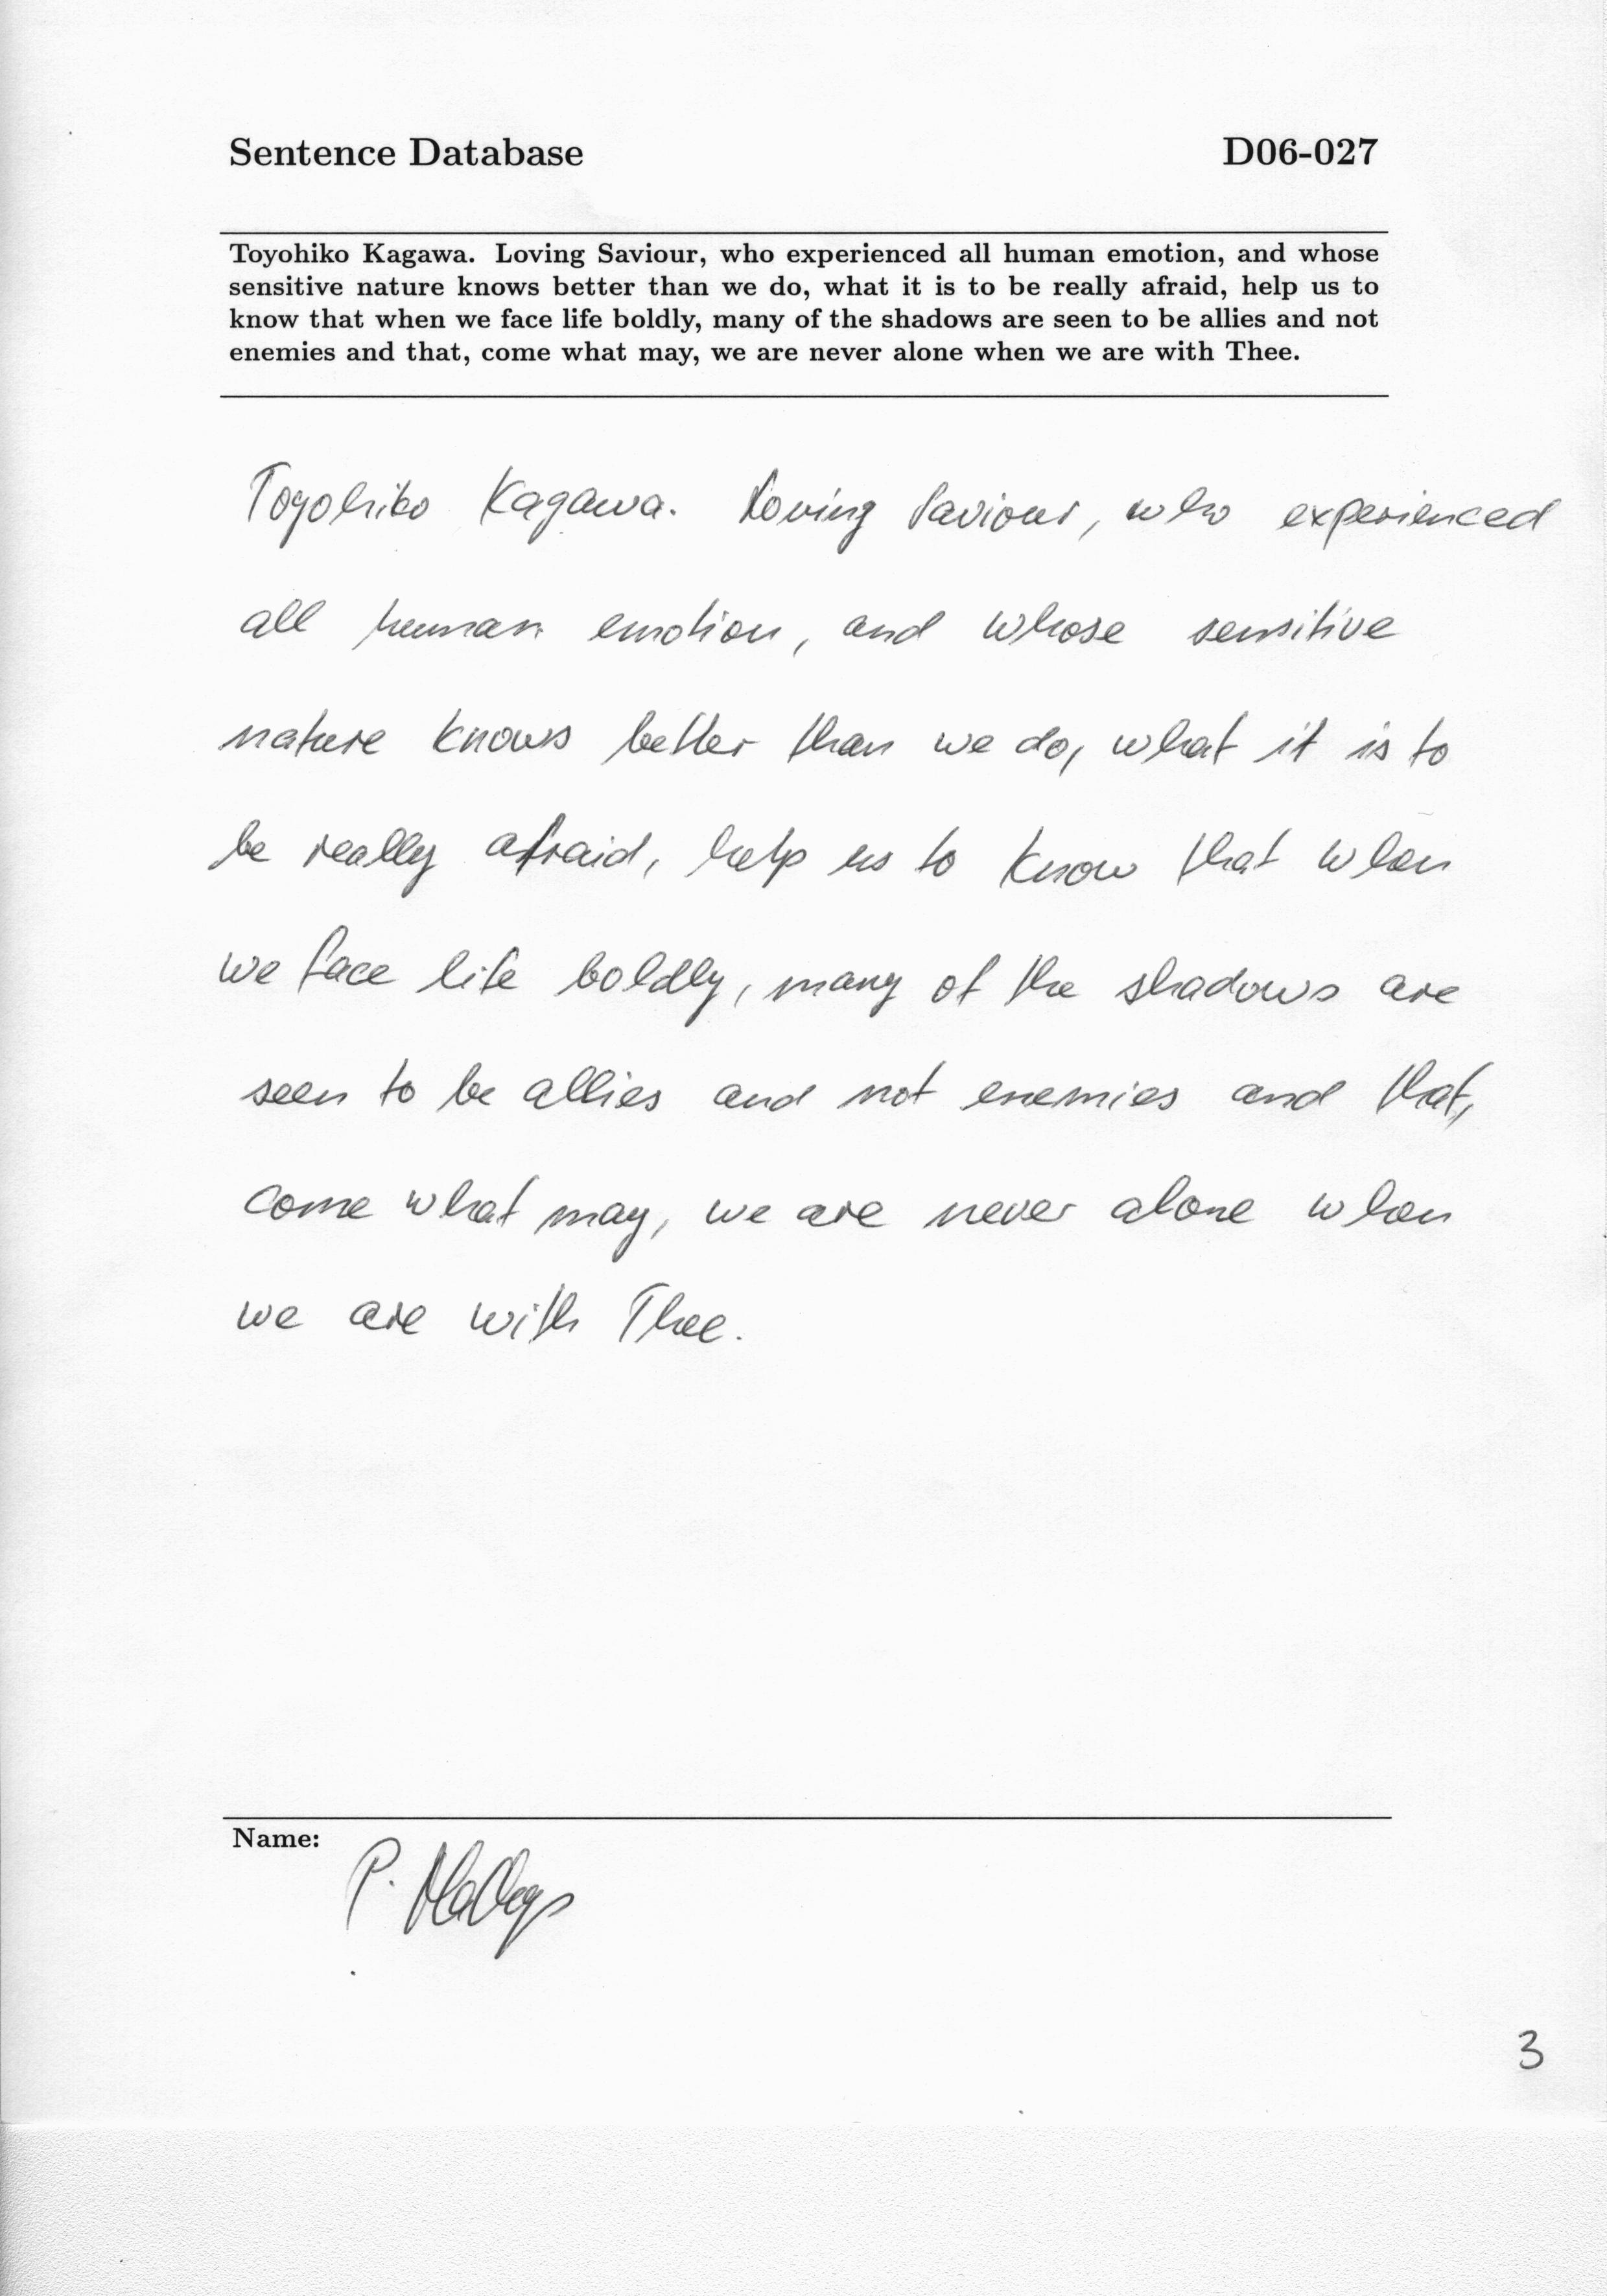 Sentence Database D06-027
Toyohiko Kagawa. Loving Saviour, who experienced all human emotion, and whose
sensitive nature knows better than we do, what it is to be really afraid, help us to
know that when we face life boldly, many of the shadows are seen to be allies and not
enemies and that, come what may, we are never alone when we are with Thee.
Toyohiko Kagawa. Loving Saviour, who experienced
all human emotion, and whose sensitive
nature knows better than we do, what it is to
be really afraid, help us to know that when
we face life boldly, many of the shadows are
seen to be allies and not enemies and that,
come what may, we are never alone when
we are with Thee.
Name:
P.
3